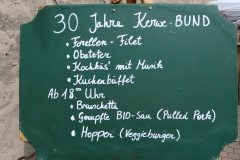 30 Jahre Kerwe-BUND
• Forellen-Filet
• Obatzter
• Kochkäs' mit Musik
• Kuchenbüffet
Ab 18⁰⁰ Uhr
• Bruschetta
• Gerupfte BIO-Sau (Pulled Pork)
• Hopper (Veggieburger)